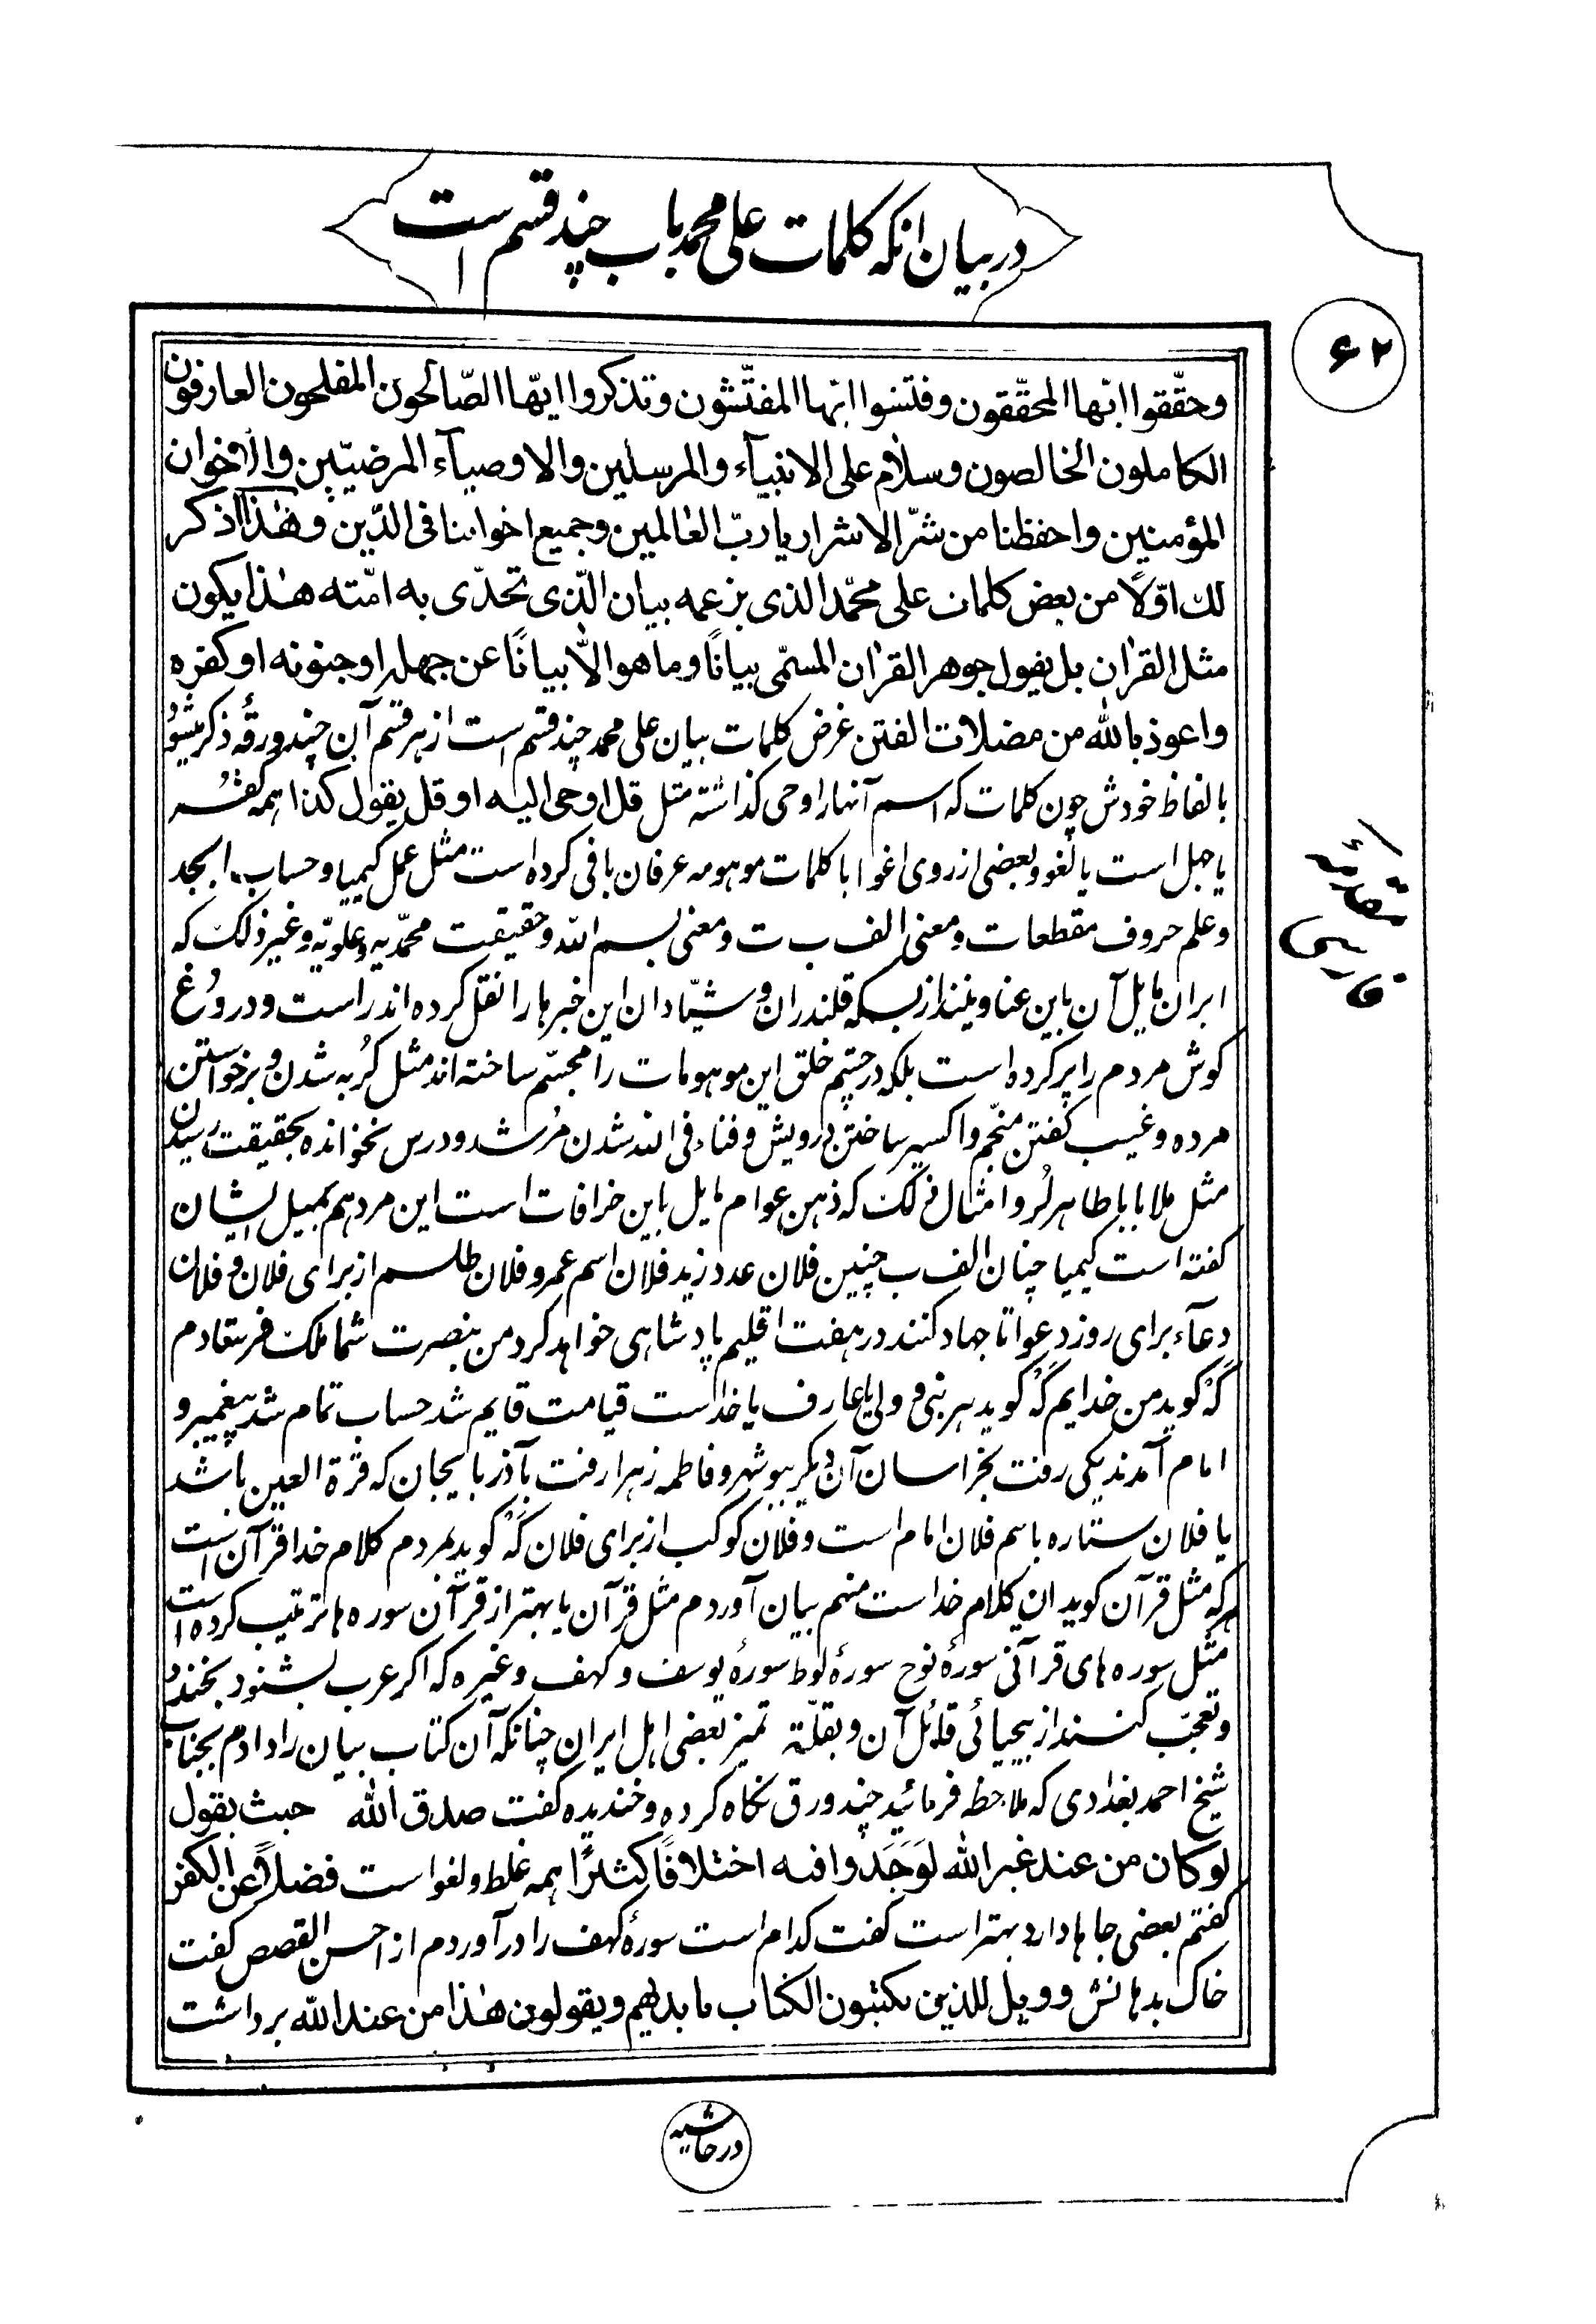 در بیان انکه کلمات علی محمد باب چند قسم است
۶۲
وحقّقوا ایّها المحقّقون وفتّشوا ایّها المفتّشون وتذکروا ایّها الصّالحون المفلحون العارفون
الکاملون الخالصون وسلام علی الانبیآء والمرسلین والاوصیآء المرضیّین والاخوان
المؤمنین واحفظنا من شرّ الاشرار یا ربّ العالمین وجمیع اخواننا فی الدّین وهٰذا اذکر
لک اوّلاً من بعض کلمات علی محمّد الذی بزعمه بیان الّذی تحدّی به امّته هٰذا یکون
مثل القرٰان بل یقول جوهر القرٰان المسمّی بیاناً وما هو الّا بیاناً عن جهله او جنونه او کفره
واعوذ بالله من مضلات الفتن غرض کلمات بیان علی محمد چند قسم است از هر قسم آن چند ورقه ذکر میشود
بالفاظ خودش چون کلمات که اسم آنها را وحی کذاشته مثل قل اوحی الیه او قل یقول کذا همه کفر
یا جهل است یا لغو و بعضی از روی اغوا با کلمات موهومه عرفان بافی کرده است مثل عمل کیمیا و حساب ابجد
و علم حروف مقطعات و معنی الف ب ت و معنی بسم الله و حقیقت محمّدیه و علویّه و غیر ذلک که
ایران مایل آن باین عناوینند از بسکه قلندران و شیّادان این خبرها را نقل کرده اند راست و دروغ
کوش مردم را پر کرده است بلکه در چشم خلق این موهومات را مجسّم ساخته اند مثل کربه شدن و برخواستن
مرده و غیب کفتن منجّم و اکسیر ساختن درویش و فناء فی الله شدن مرشد و درس نخوانده بحقیقت رسیدن
مثل ملا بابا طاهر لُر و امثال ذلک که ذهن عوام مایل باین خرافات است این مرد هم بمیل ایشان
کفته است کیمیا چنان الف ب چنین فلان عدد زید فلان اسم عمرو فلان طلسم از برای فلان و فلان
دعآء برای روز دعوا تا جهاد کنند در هفت اقلیم پادشاهی خواهد کرد من بنصرت شما ملک فرستادم
که کوید من خدایم که کوید هر نبی و ولی یا عارف یا خداست قیامت قایم شد حساب تمام شد پیغمبر و
امام آمدند یکی رفت بخراسان آن دیکر ببوشهر و فاطمه زهرا رفت بآذربایجان که قرّة العین باشد
یا فلان ستاره باسم فلان امام است و فلان کوکب از برای فلان که کوید بمردم کلام خدا قرآن است
هرکه مثل قرآن کوید ان کلام خداست منهم بیان آوردم مثل قرآن یا بهتر از قرآن سوره ها ترتیب کرده است
مثل سوره های قرآنی سورهٔ نوح سورهٔ لوط سورهٔ یوسف و کهف و غیره که اکر عرب بشنود بخندد
و تعجّب کنند از بیحیائی قائل آن و بقلّة تمیز بعضی اهل ایران چنانکه آن کتاب بیان را دادم بجناب
شیخ احمد بغدادی که ملاحظه فرمائید چند ورق نکاه کرده و خندیده کفت صدق الله حیث یقول
لو کان من عند غیر الله لَوَجَدوا فیه اختلافاً کثیراً همه غلط و لغو است فضلاً عن الکفر
کفتم بعضی جاها دارد بهتر است کفت کدام است سورهٔ کهف را در آوردم از احسن القصص کفت
خاک بدهانش و ویل للذین یکتبون الکتاب بایدیهم ویقولون هٰذا من عند الله برداشت
فارسی
در حاشیه